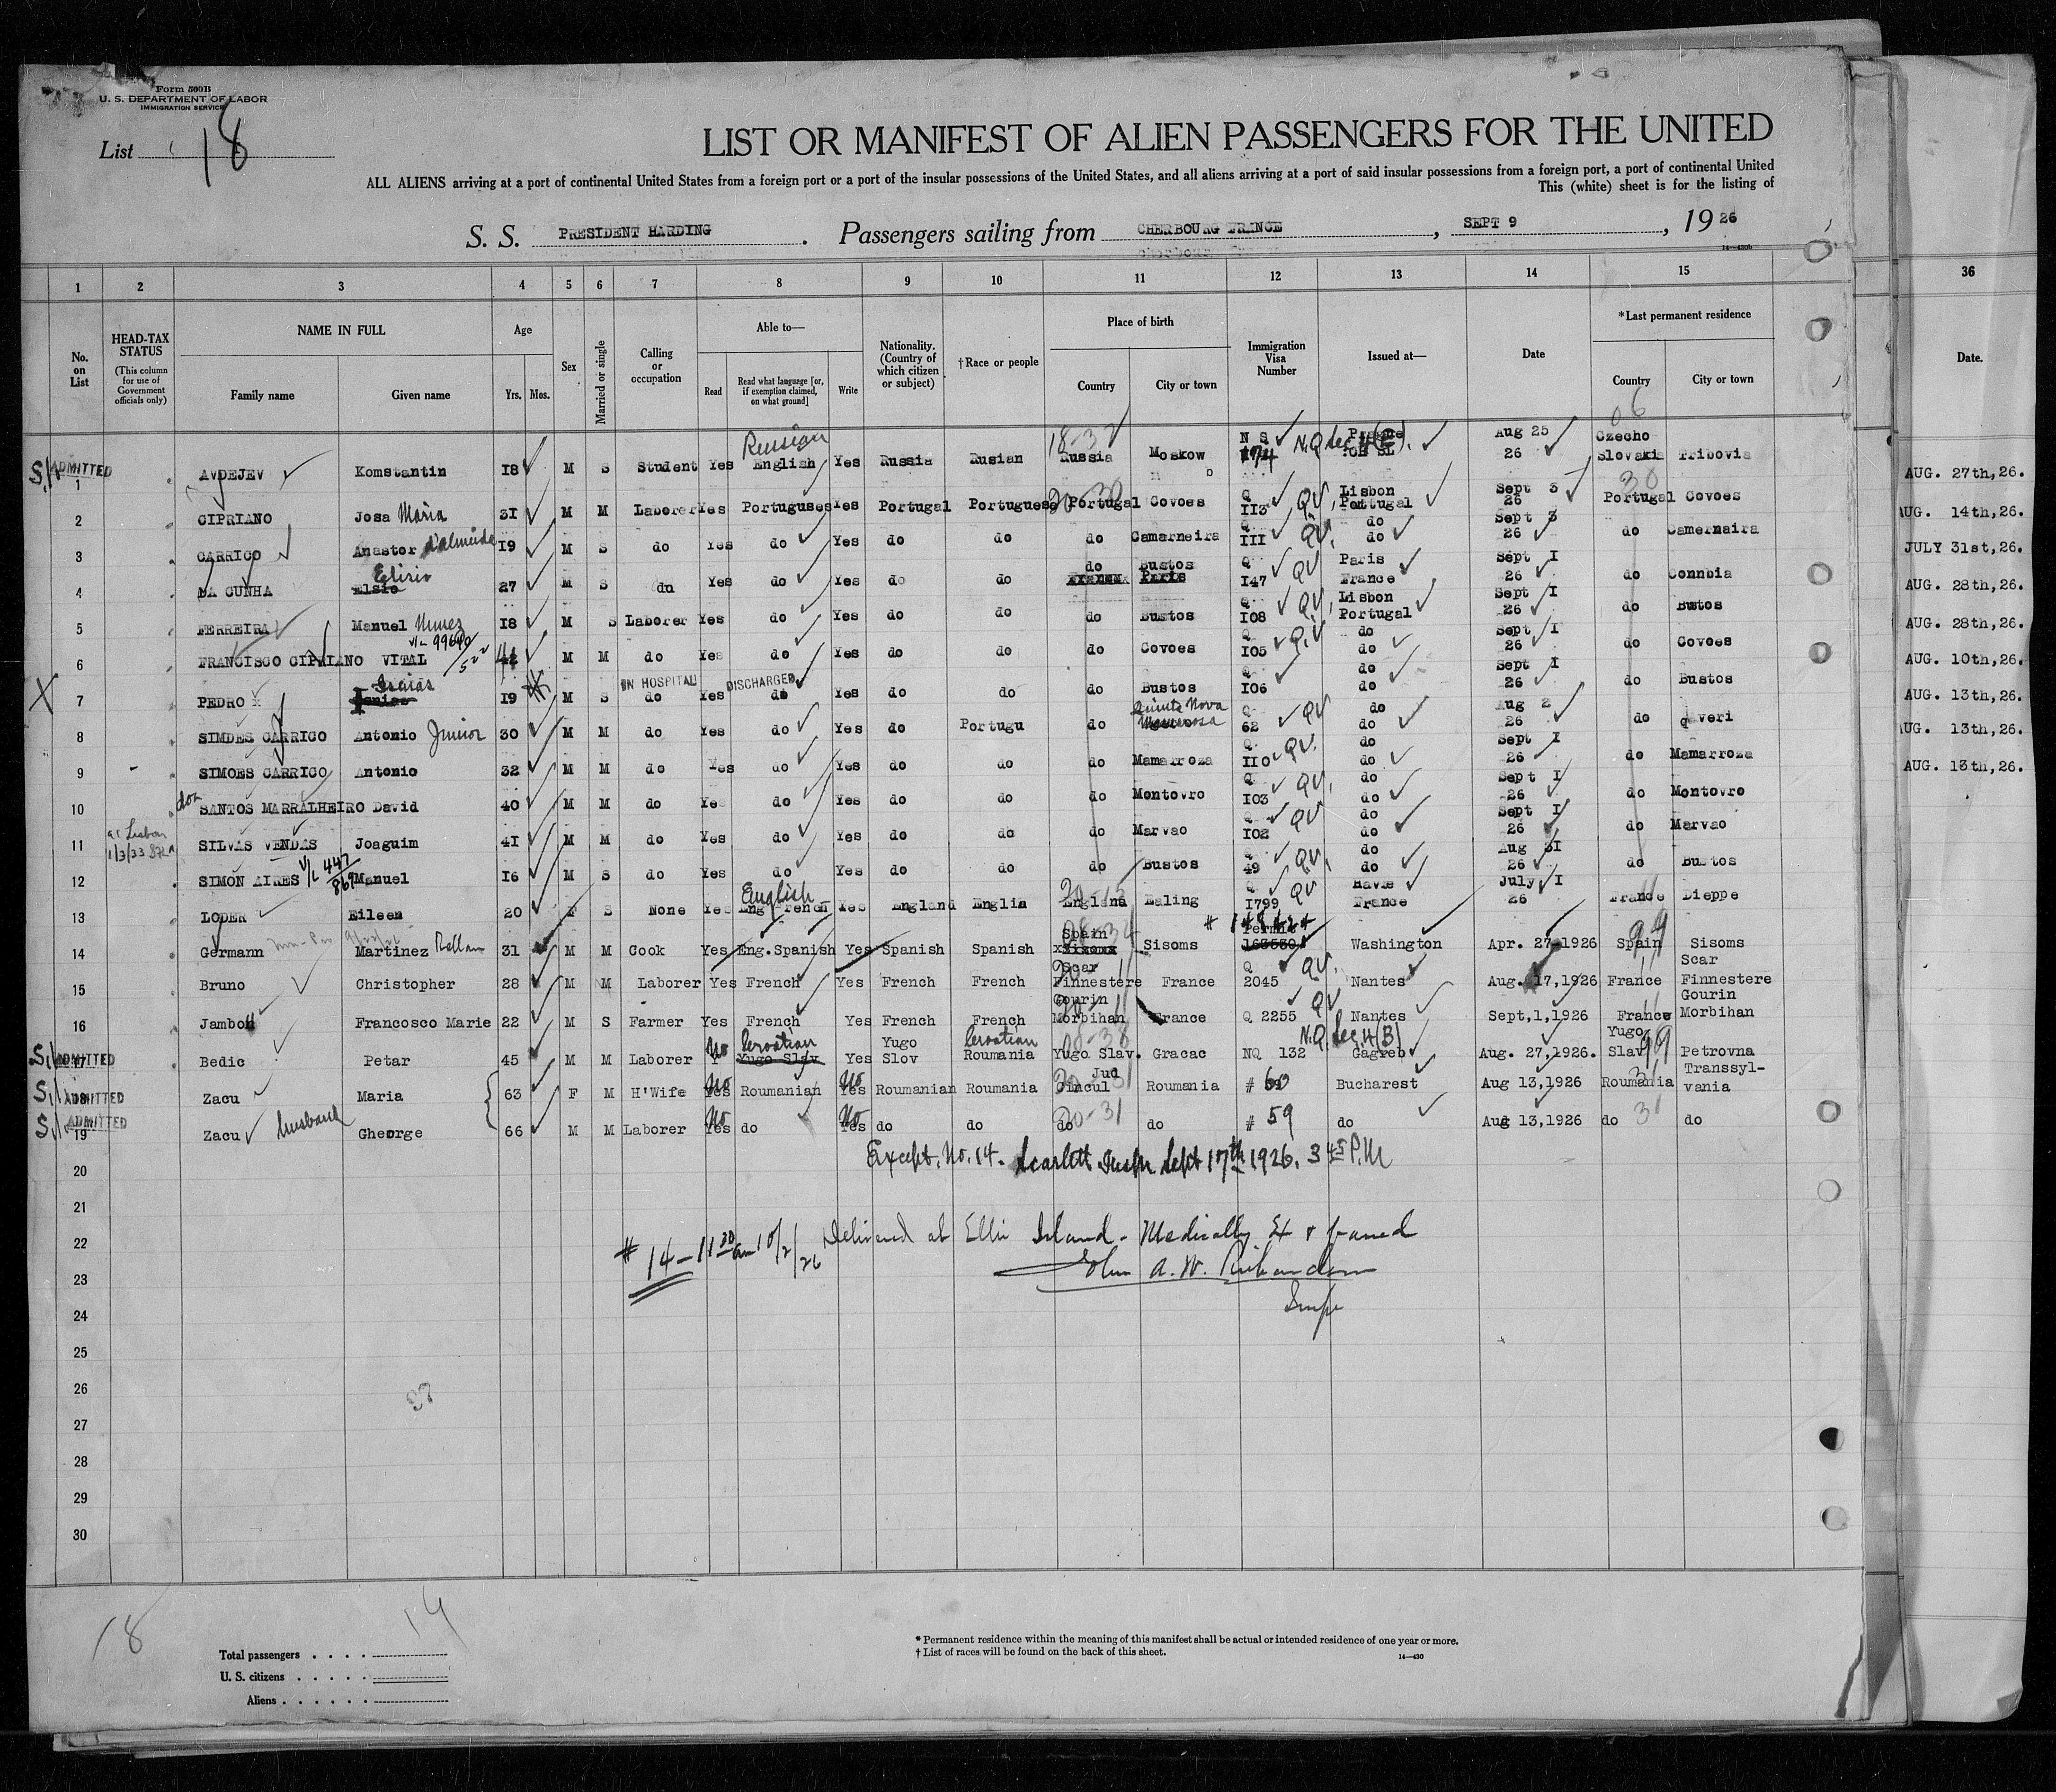 Form 500B
U. S. DEPARTMENT OF LABOR
IMMIGRATION SERVICE
List 18
LIST OR MANIFEST OF ALIEN PASSENGERS FOR THE UNITED
ALL ALIENS arriving at a port of continental United States from a foreign port or a port of the insular possessions of the United States, and all aliens arriving at a port of said insular possessions from a foreign port, a port of continental United
This (white) sheet is for the listing of
S. S. PRESIDENT HARDING. Passengers sailing from CHERBOURG FRANCE, SEPT 9, 1926
14—430b
1 2 3 4 5 6 7 8 9 10 11 12 13 14 15 36
No. on List
HEAD-TAX STATUS (This column for use of Government officials only)
NAME IN FULL
Family name Given name
Age
Yrs. Mos.
Sex
Married or single
Calling or occupation
Able to—
Read Read what language [or, if exemption claimed, on what ground] Write
Nationality. (Country of which citizen or subject)
†Race or people
Place of birth
Country City or town
Immigration Visa Number
Issued at—
Date
*Last permanent residence
Country City or town
Date.
ADMITTED 1 AVDEJEV Komstantin 18 M S Student Yes English Russian Yes Russia Rusian Russia Moskow N S N.Q Sec 4(E). Prague Aug 25 26 Czecho Slovakia Tribovia AUG. 27th,26.
2 CIPRIANO Josa Maria 31 M M Laborer Yes Portuguses Yes Portugal Portuguese Portugal Covoes Q 113 QV, Lisbon Portugal Sept 3 26 Portugal Covoes AUG. 14th,26.
3 CARRICO Anastor d'Almeida 19 M S do Yes do Yes do do do Camarneira Q 111 QV. do do Sept 3 26 do Camernaira JULY 31st,26.
4 DA CUNHA Elsio Elirio 27 M S do Yes do Yes do do do Bustos Paris Q 147 QV Paris France Sept I 26 do Connbia AUG. 28th,26.
5 FERREIRA Manuel Nunez 18 M S Laborer Yes do Yes do do do Bustos Q 108 QV, Lisbon Portugal Sept I 26 do Bustos AUG. 28th,26.
6 FRANCISCO CIPRIANO VITAL V/L 99640/522 M M do Yes do Yes do do do Covoes Q 105 Q.V do do Sept I 26 do Covoes AUG. 10th,26.
X 7 PEDRO Isaias 19 M S do IN HOSPITAL Yes do DISCHARGED Yes do do do Bustos Q 106 do do Sept I 26 do Bustos AUG. 13th,26.
8 SIMDES CARRICO Antonio Junior 30 M M do Yes do Yes do Portugu do Quinta Nova Q 62 QV do do Aug 2 26 do averi AUG. 13th,26.
9 SIMOES CARRICO Antonio 32 M M do Yes do Yes do do do Mamarroza Q 110 QV. do do Sept I 26 do Mamarroza AUG. 13th,26.
10 dos SANTOS MARRALHEIRO David 40 M M do Yes do Yes do do do Montovro Q 103 QV, do do Sept I 26 do Montovro
11 at Lisbon 1/3/33 SILVAS VENDAS Joaguim 41 M M do Yes do Yes do do do Marvao Q 102 QV do do Sept I 26 do Marvao
12 SIMON AIRES V/L 447/869 Manuel 16 M S do Yes do Yes do do do Bustos Q 49 QV, do do Aug 31 26 do Bustos
13 LODER Eileen 20 F S None Yes Eng French English Yes England Englis England Ealing Q 1799 QV Havre France July I 26 France Dieppe
14 Germann Martinez 31 M M Cook Yes Eng.Spanish Yes Spanish Spanish Spain Scar Sisoms Permit 163530 Washington Apr. 27,1926 Spain Sisoms Scar
15 Bruno Christopher 28 M M Laborer Yes French Yes French French Finnestere France Q 2045 QV. Nantes Aug. 17,1926 France Finnestere
16 Jambou Francosco Marie 22 M S Farmer Yes French Yes French French Gourin Morbihan France Q 2255 QV Nantes Sept,1,1926 France Gourin Morbihan
ADMITTED 17 Bedic Petar 45 M M Laborer No Yugo Slav Croatian Yes Yugo Slov Roumania Croatian Yugo Slav. Gracac NQ 132 N.Q Sec.4(B) Gagreb Aug. 27,1926. Yugo Slav Petrovna
ADMITTED 18 Zacu Maria 63 F M H'Wife Yes No Roumanian Yes No Roumanian Roumania Jud Cincul Roumania # 60 Bucharest Aug 13,1926 Roumania Transsyl-vania
ADMITTED 19 Zacu husband Gheorge 66 M M Laborer Yes No do Yes No do do do do # 59 do Aug 13,1926 do do
20
Except. No. 14. Scarlett Inspr. Sept 17th 1926. 3 45 P.M
21
22
# 14 - 11 30 am 10/2/26 Delivered at Ellis Island - Medically Ex & passed
23
John A. W. Richardson
24
Insp
25
26
27
28
29
30
18
14
Total passengers
U. S. citizens
Aliens
* Permanent residence within the meaning of this manifest shall be actual or intended residence of one year or more.
† List of races will be found on the back of this sheet.
14—430